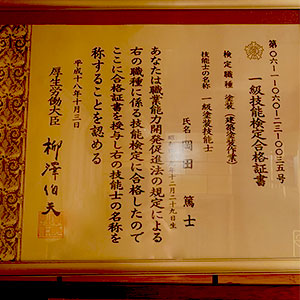 第〇六ー一ー〇六〇ー二三ー〇〇三五号
一級技能検定合格証書
検定職種 塗装(建築塗装作業)
技能士の名称 一級塗装技能士
氏名 岡田 篤士
十二月二十九日生
あなたは職業能力開発促進法の規定による
右の職種に係る技能検定に合格したので
ここに合格証書を授与し右の技能士の名称を
称することを認める
平成十八年十月三日
厚生労働大臣 柳澤伯夫